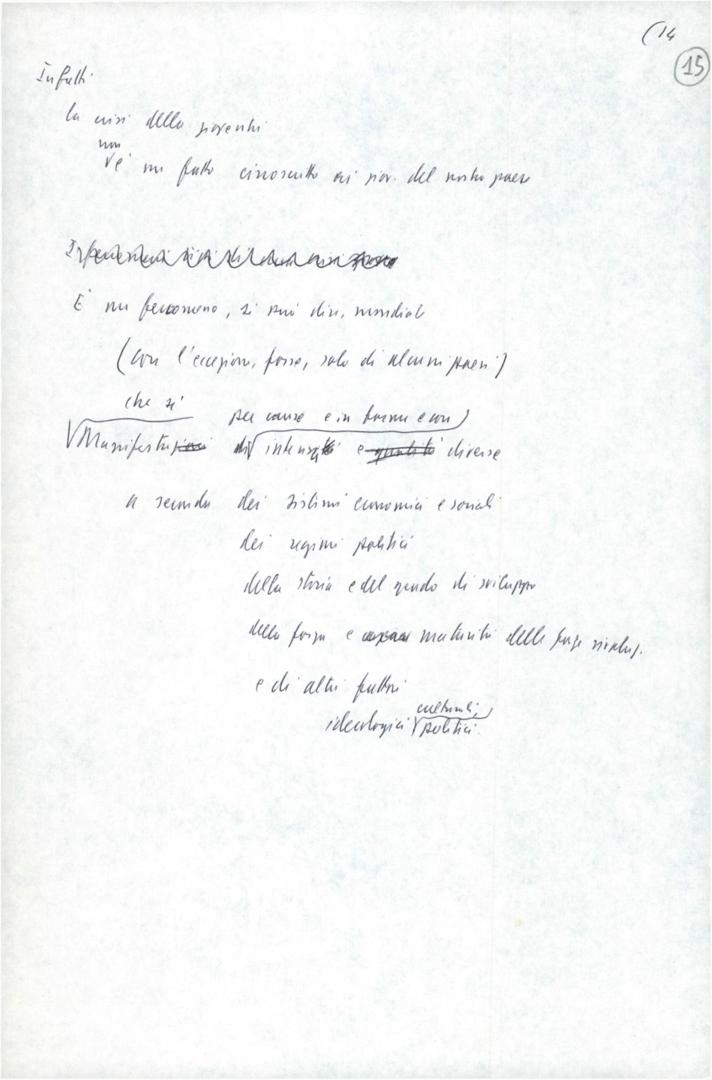 (14
15
Infatti
la crisi della gioventù
non
è un fatto circoscritto ai giov. del nostro paese
È un fenomeno, si può dire, mondiale
(con l'eccezione, forse, solo di alcuni paesi)
che si per cause e in forme e con
Manifesta intensità e qualità diverse
a seconda dei sistemi economici e sociali
dei regimi politici
della storia e del grado di sviluppo
della forza e maturità delle forze rivoluz.
e di altri fattori
culturali,
ideologici politici